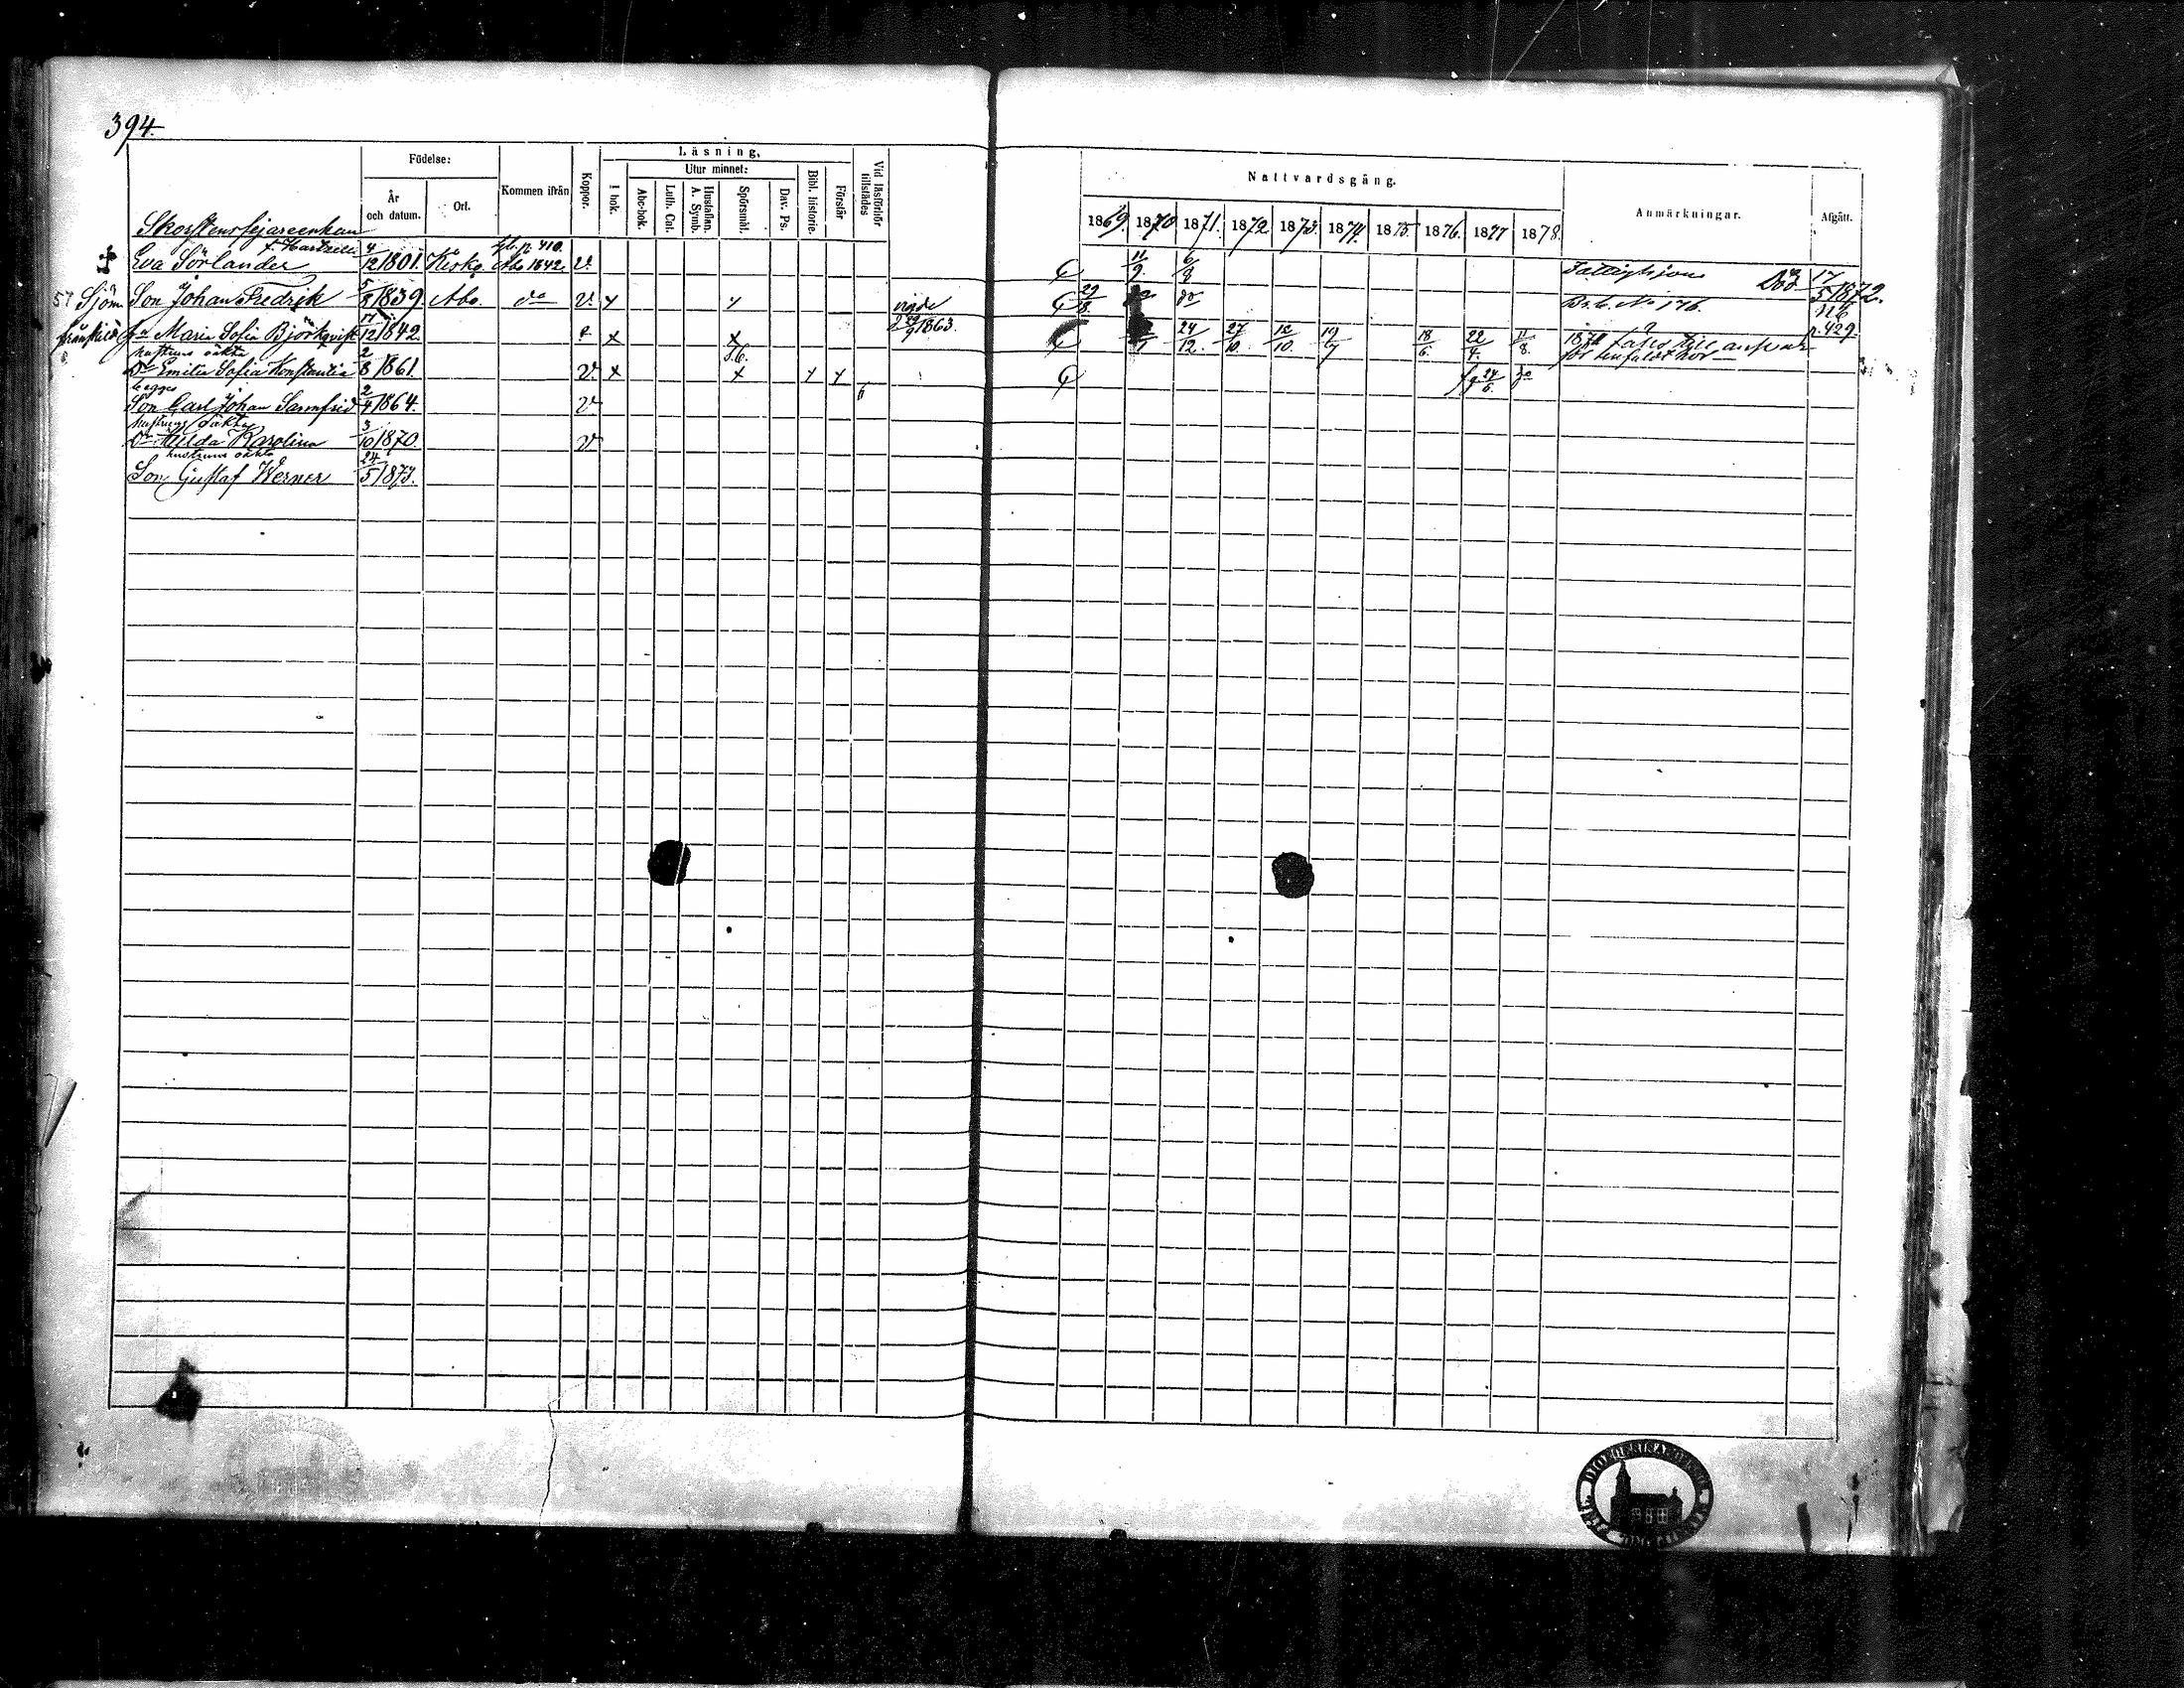 394.
Födelse:
Kommen ifrån
Koppor.
Läsning.
Utur minnet:
I bok.
Abc-bok.
Luth. Cat.
Hustaflan. A. Symb.
Spörsmål.
Dav. Ps.
Bibl. historie.
Förstår
Vid läsförhör tillstädes
År och datum.
Ort.
Nattvardsgång.
1869. 1870 1871. 1872 1873. 1874. 1875. 1876. 1877 1878.
Anmärkningar.
Afgått.
Skorstensfejareenkan
Eva Sörlander 4/12 1801. Kisko. Abo 1842 v. 11/9. 6/8 Död 17/5 1872.
57 Sjöm Son Johan Fredrik 5/8 1839. Abo. do v. x x vigde 29/8. do Br.b. No 176.
frånskild Maria Sofia Björkqvist 17/12 1842. x x 9 1863. 24/12. 27/10. 12/10. 19/7 18/6. 22/4. 11/8. p. 429.
hustruns oäkta
Dr Emilia Sofia Konstantia 2/8 1861. v. x x x x 24/6. do
begges
Son Carl Johan Sannfrid 2/4 1864. v
hustruns oäkta
Dr Hilda Karolina 3/10 1870. v
hustruns oäkta
Son Gustaf Werner 24/5 1873.